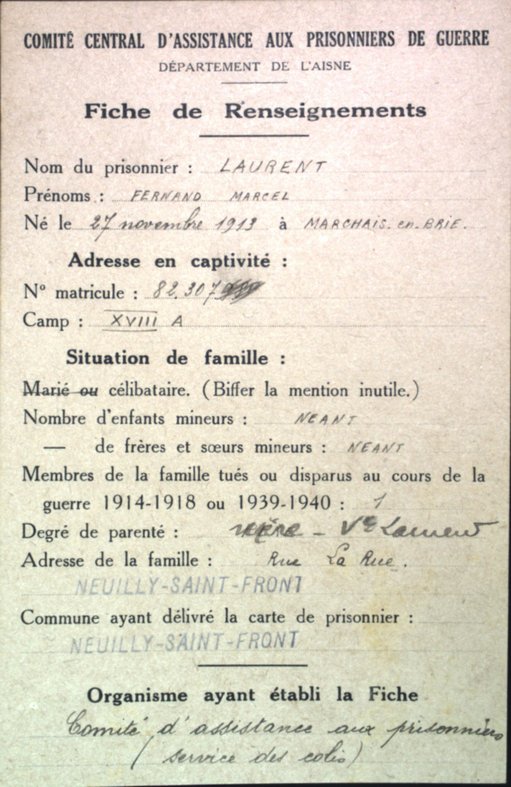 COMITÉ CENTRAL D'ASSISTANCE AUX PRISONNIERS DE GUERRE
DÉPARTEMENT DE L'AISNE
Fiche de Renseignements
Nom du prisonnier : LAURENT
Prénoms : FERNAND MARCEL
Né le 27 novembre 1913 à MARCHAIS-en-BRIE.
Adresse en captivité :
N° matricule : 82.307
Camp : XVIII A
Situation de famille :
Marié ou célibataire. (Biffer la mention inutile.)
Nombre d'enfants mineurs : NEANT
— de frères et sœurs mineurs : NEANT
Membres de la famille tués ou disparus au cours de la
guerre 1914-1918 ou 1939-1940 : 1
Degré de parenté : mère - Vve Laurent
Adresse de la famille : Rue La Rue.
NEUILLY-SAINT-FRONT
Commune ayant délivré la carte de prisonnier :
NEUILLY-SAINT-FRONT
Organisme ayant établi la Fiche
Comité d'assistance aux prisonniers
(service des colis)